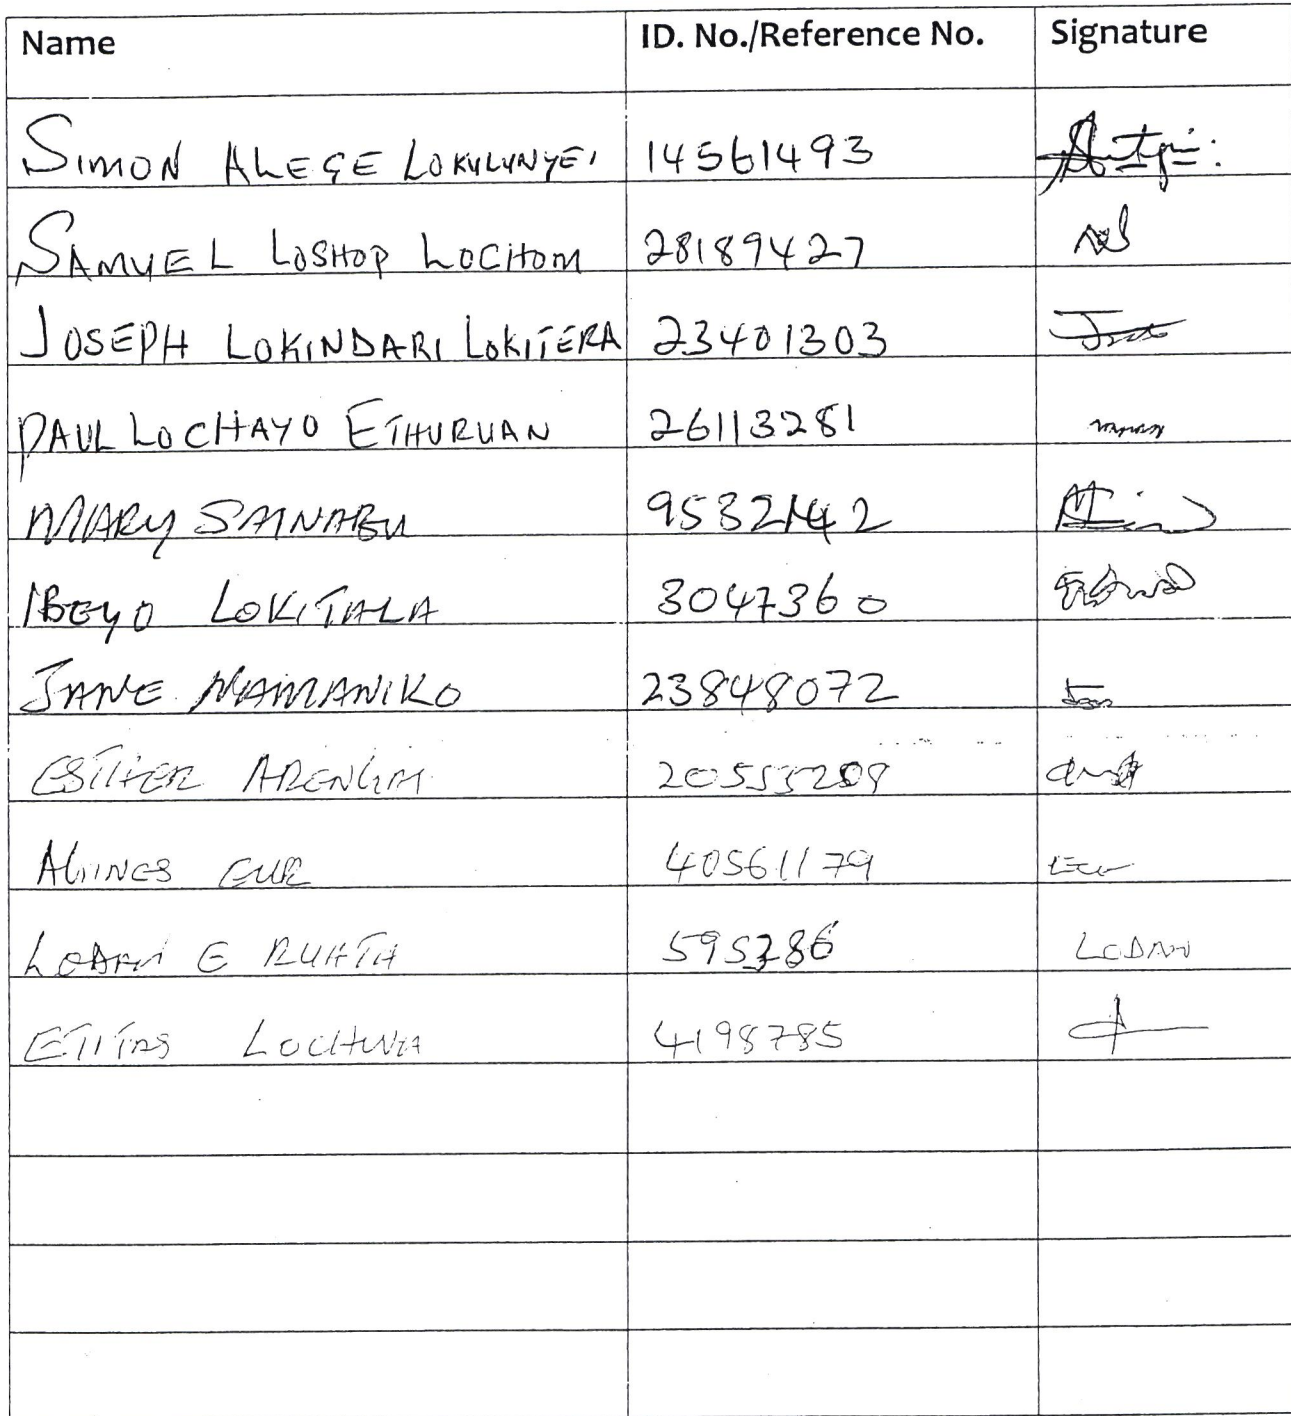 Name ID. No./Reference No. Signature
SIMON ALEGE LOKULUNYEI 14561493
SAMUEL LOSHOP LOCHOM 28189427
JOSEPH LOKINDARI LOKITERA 23401303
PAUL LOCHAYO ETHURUAN 26113281
MARY SAINABU
IBEYO LOKITALA 3047360
JANE NAMANIKO 23848072
ESTHER ARENGIM 20555209
AGINES EUR 40561179
LOBAN E RUATA
LOCHURIA 4198785